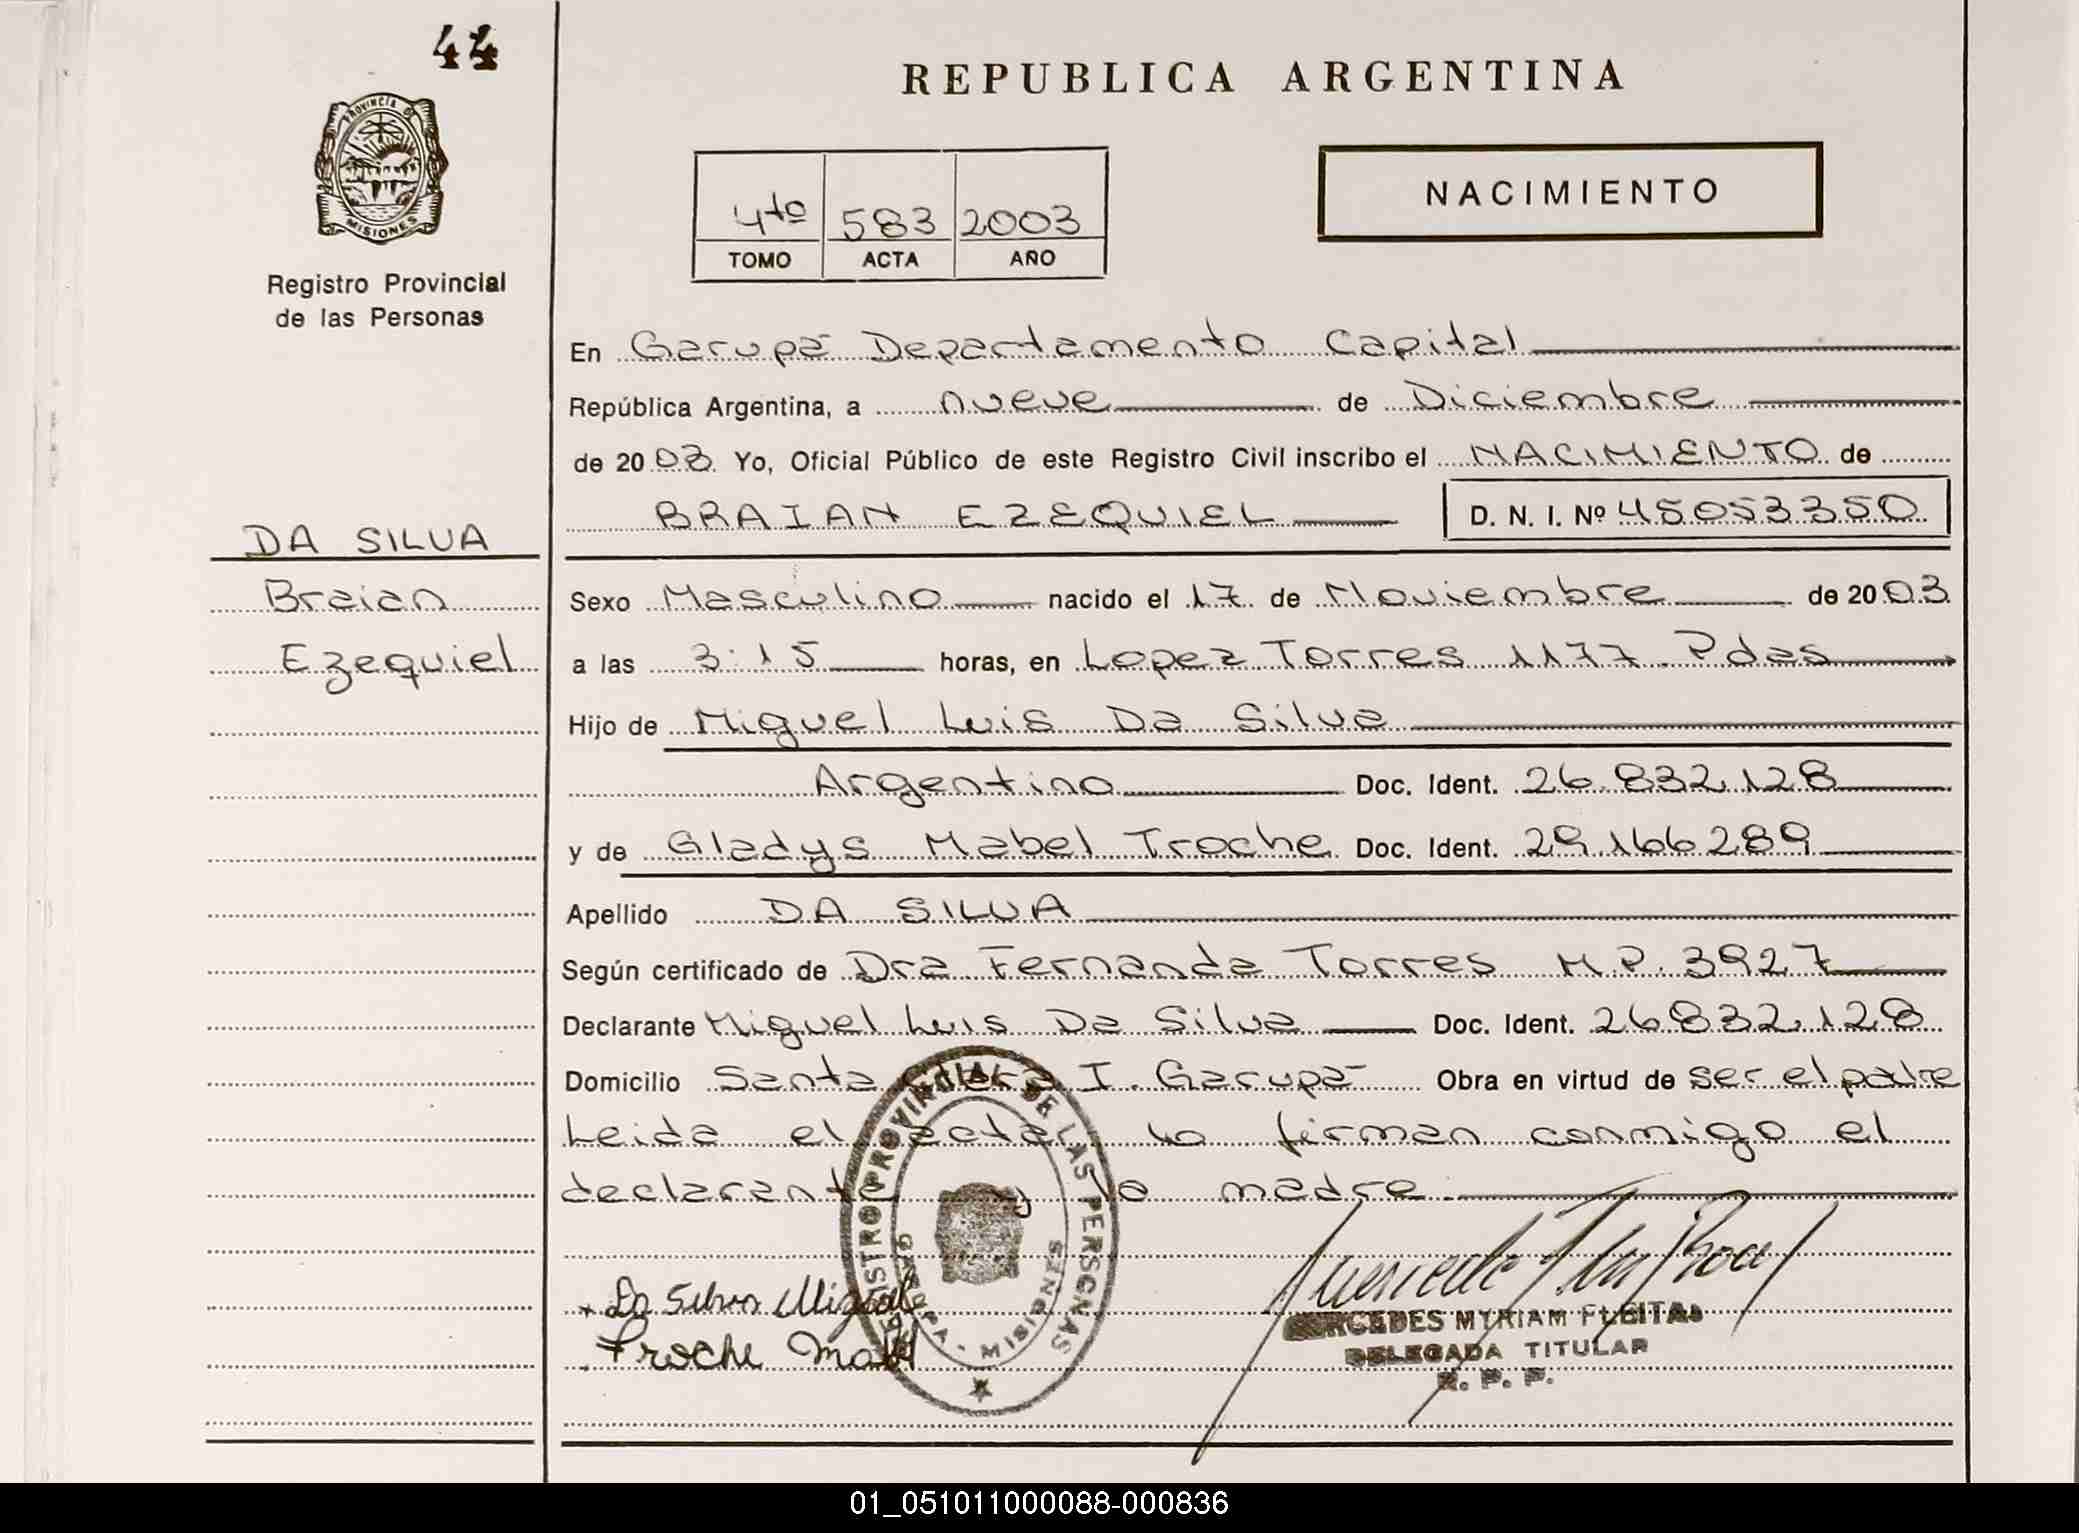 44
PROVINCIA DE
MISIONES
Registro Provincial
de las Personas
REPUBLICA ARGENTINA
4to 583 2003
TOMO ACTA AÑO
NACIMIENTO
En Garupá Departamento Capital
República Argentina, a nueve de Diciembre
de 2003 Yo, Oficial Público de este Registro Civil inscribo el NACIMIENTO de
BRAIAN EZEQUIEL D. N. I. Nº 45053350
DA SILVA
Braian
Ezequiel
Sexo Masculino nacido el 17 de Noviembre de 2003
a las 3:15 horas, en Lopez Torres 1177 Pdas
Hijo de Miguel Luis Da Silva
Argentino Doc. Ident. 26.832.128
y de Gladys Mabel Troche Doc. Ident. 29.166.289
Apellido DA SILVA
Según certificado de Dra Fernanda Torres M.P. 3927
Declarante Miguel Luis Da Silva Doc. Ident. 26.832.128
Domicilio Santa Clara I. Garupá Obra en virtud de ser el padre
Leida el acta, la firman conmigo el
declarante y la madre.
REGISTRO PROVINCIAL DE LAS PERSONAS
GARUPA - MISIONES
Da Silva Miguel
Troche Mabel
MERCEDES MYRIAM
DELEGADA TITULAR
R. P. P.
01_051011000088-000836